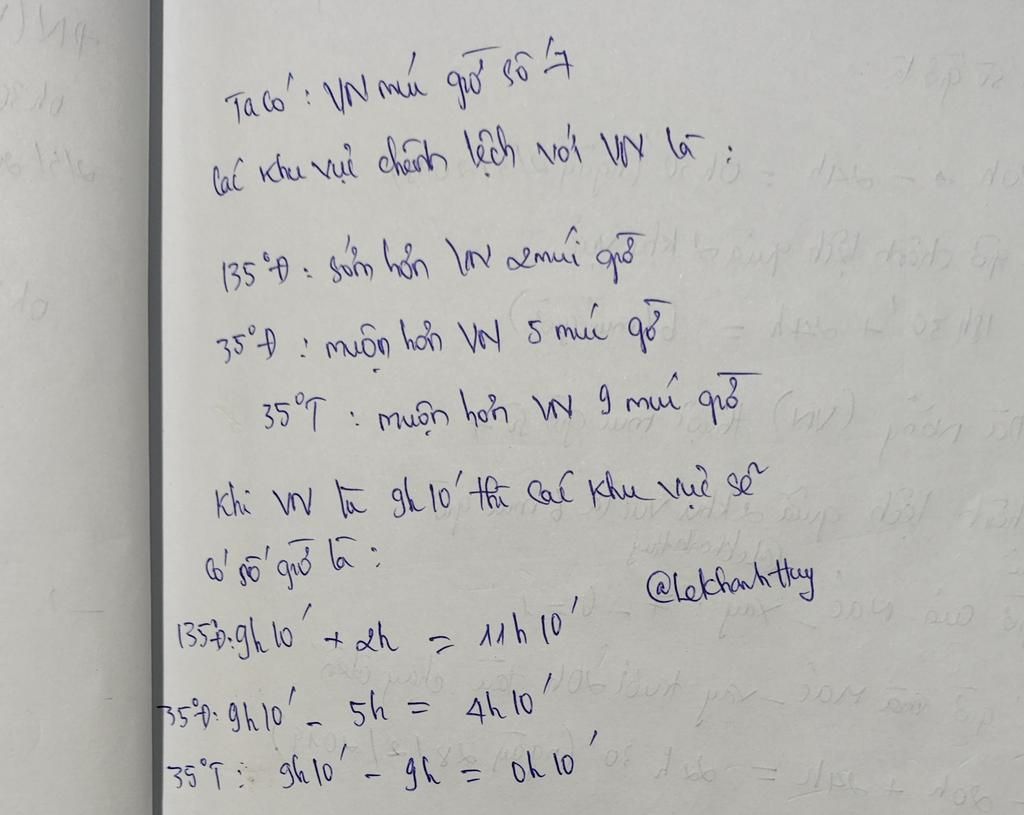 Ta có: VN múi giờ số 7
Các khu vực chênh lệch với VN là:
135°Đ: sớm hơn VN 2 múi giờ
35°Đ: muộn hơn VN 5 múi giờ
35°T: muộn hơn VN 9 múi giờ
Khi VN là 9h10' thì các khu vực sẽ
có số giờ là:
@LeKhanhHuy
135°Đ: 9h10' + 2h = 11h10'
35°Đ: 9h10' - 5h = 4h10'
35°T: 9h10' - 9h = 0h10'